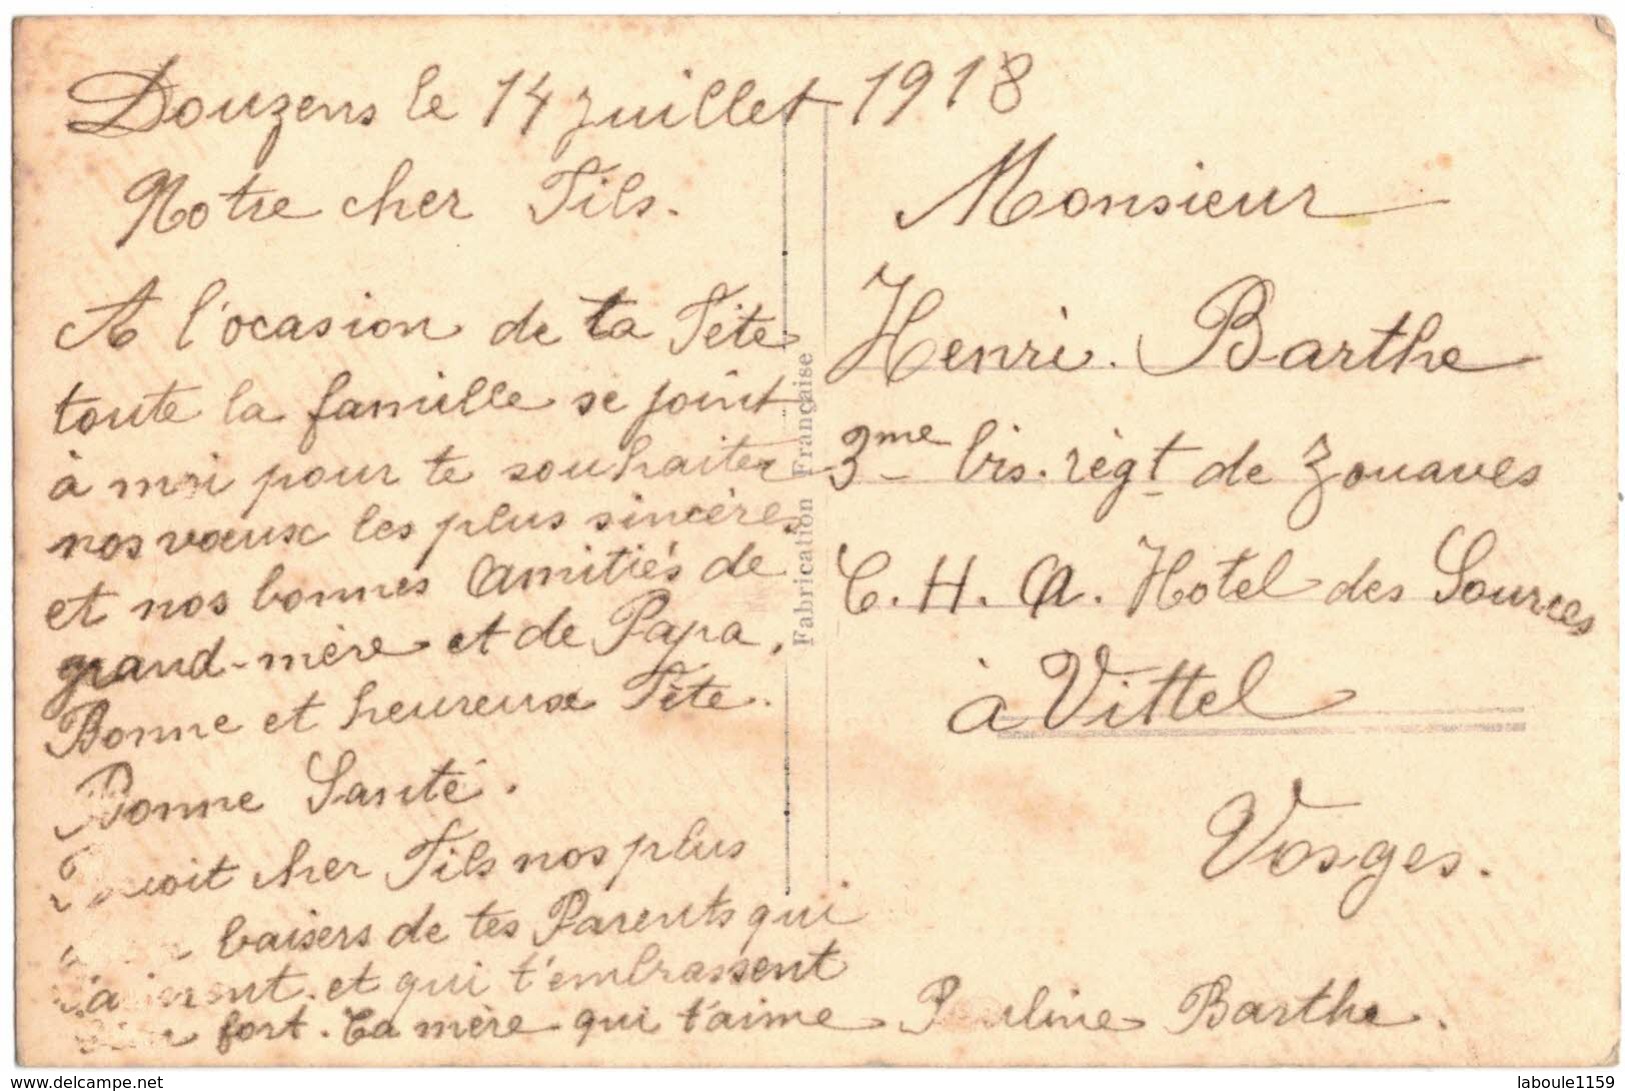 Douzens le 14 juillet 1918
Notre cher Fils.
A l'ocasion de ta Fête
toute la famille se joint
à moi pour te souhaiter
nos vœux les plus sincères
et nos bonnes Amitiés de
grand-mère et de Papa.
Bonne et heureuse Fête.
Bonne Santé.
Reçoit cher Fils nos plus
baisers de tes Parents qui
t'aiment et qui t'embrassent
fort. Ta mère qui t'aime Pauline Barthe.
Fabrication Française
Monsieur
Henri Barthe
3me bis. règt de Zouaves
C. H. A. Hotel des Sources
à Vittel
Vosges.
www.delcampe.net
laboule1159